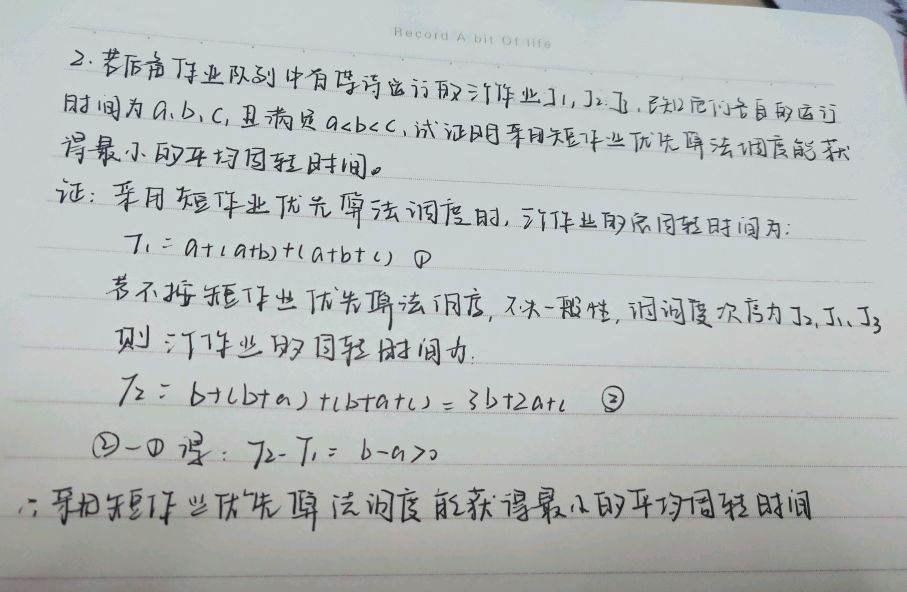 Record A bit Of life
2.若后备作业队列中有等待运行的三个作业J1,J2,J3,已知它们各自的运行
时间为a,b,c,且满足a<b<c,试证明采用短作业优先算法调度能获
得最小的平均周转时间。
证:采用短作业优先算法调度时,三个作业的总周转时间为:
T1=a+(a+b)+(a+b+c) ①
若不按短作业优先算法调度,不失一般性,调度次序为J2,J1,J3
则三个作业的周转时间为:
T2=b+(b+a)+(b+a+c)=3b+2a+c ②
②-①得:T2-T1=b-a>0
∴采用短作业优先算法调度能获得最小的平均周转时间